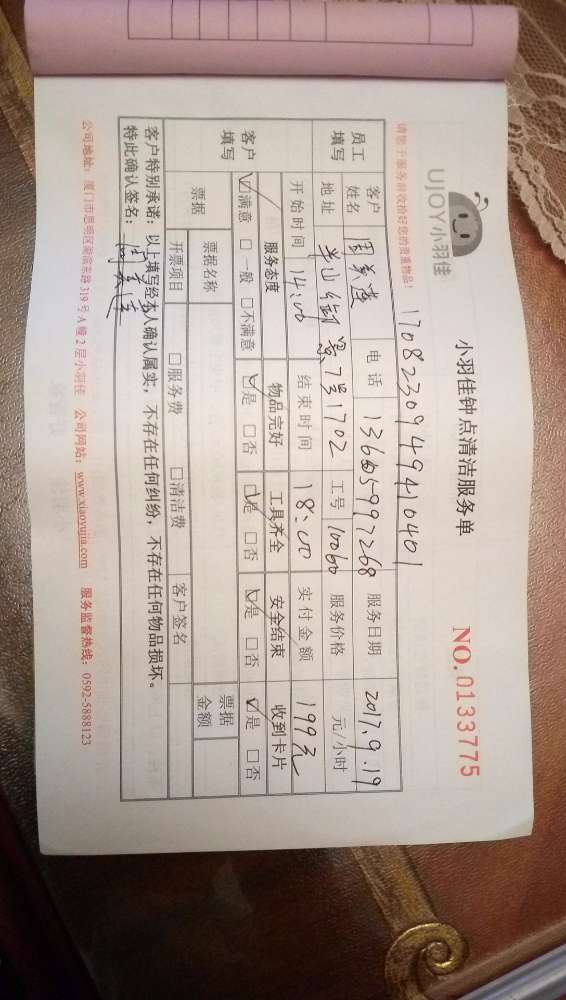 UJOY小羽佳
小羽佳钟点清洁服务单
NO.0133775
请您于服务前收拾好您的贵重物品！
17082309494910401
员工填写
客户姓名 周 莲 电话 13605997268 服务日期 2017.9.19
地址 7号1702 工号 10060 服务价格 元/小时
开始时间 14:00 结束时间 18:00 实付金额 199元
客户填写
服务态度 物品完好 工具齐全 安全结束 收到卡片
☑满意 □一般 □不满意 ☑是 □否 ☑是 □否 ☑是 □否 ☑是 □否
票据 票据名称 票据金额
开票项目 □服务费 □清洁费 客户签名
客户特别承诺：以上填写经本人确认属实，不存在任何纠纷，不存在任何物品损坏。
特此确认签名：周 莲
公司地址：厦门市思明区湖滨东路319号A幢2层小羽佳 公司网站：www.xiaoyujia.com 服务监督热线：0592-5888123